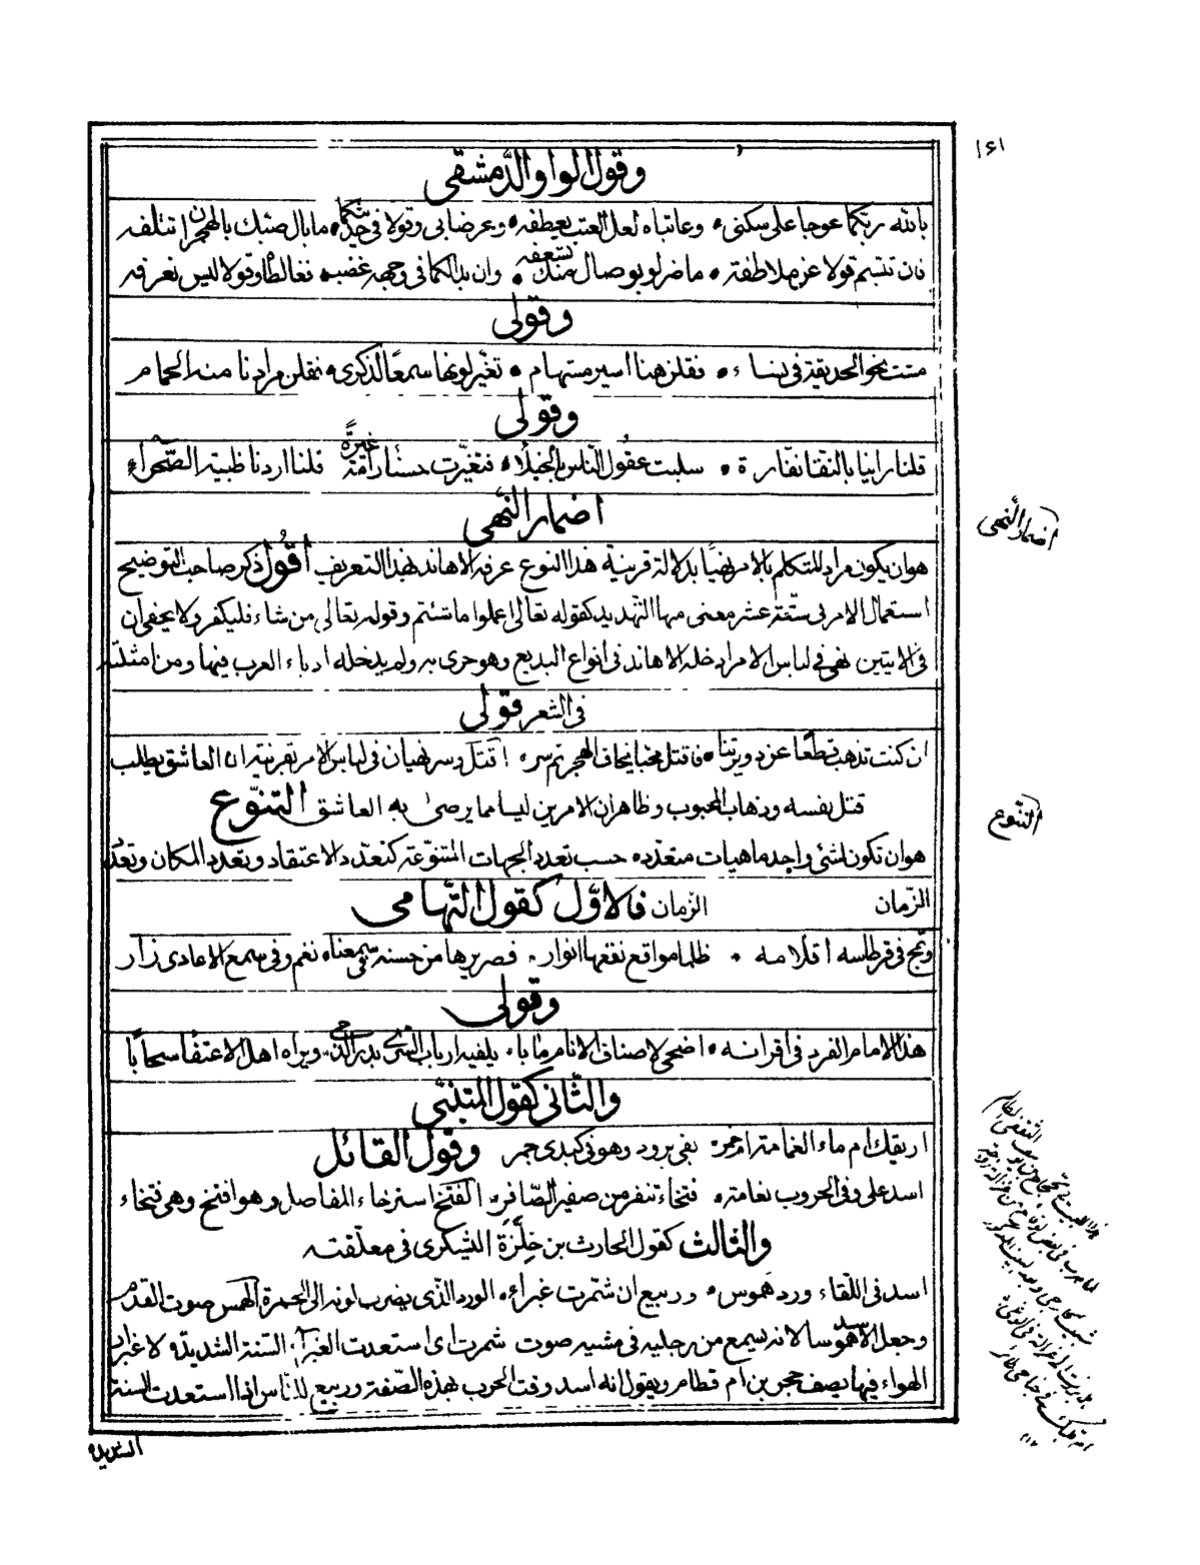 ١٤١
وقول الواو والدّمشقى
بالله ربكما عوجا على سكنى ۰ وعاتباه لعل العتب يعطفه ۰ وعرضا بى وقولا فى حديثكما ۰ ما بال صبّك بالهجران تتلفه
فان تبسّم قولا عن ملاطفة ۰ ما ضر لو بوصال منك تسعفه ۰ وان بدا لكما فى وجهه غضب ۰ فغالطا وقولا ليس نعرفه
وقولى
مشت نحو الحديقة فى نساء ۰ فقلن هنا اسير مستهام ۰ تغيّر لونها سمعًا لذكرى ۰ فقلن مرادنا منه الحمام
وقولى
قلنا راينا بالنقا نقّارة ۰ سلبت عقول النّاس بالخيلاء ۰ فتغيّرت حسناء رامة غيرةً قلنا اردنا ظبية الصّحراء
اضمار النّهى
اضمار النّهى
هو ان يكون مراد المتكلم بالامر نهيًا بدلالة قرينة هذا النوع عرفه الاهاند بهذا التعريف اقول ذكر صاحب التوضيح
استعمال الامر فى ستّة عشر معنى منها التهديد كقوله تعالى اعملوا ما شئتم وقوله تعالى من شاء فليكفر ولا يخفى ان
فى الايتين نهى فى لباس الامر ادخله الاهاند فى انواع البديع وهو حرى به ولم يدخله ادباء العرب فيها ومن امثلته
فى الشعر قولى
ان كنت تذهب قطعًا عن دويرتنا ۰ فاقتل محبا يخاف الهجر ثم سر ۰ اقتل وسر نهيان فى لباس الامر بقرينة ان العاشق يطلب
قتل نفسه وذهاب المحبوب وظاهر ان الامرين ليسا مما يرضى به العاشق التنوّع
التنوّع
هو ان تكون لشئ واحد ماهيات متعدّده حسب تعدد الجهات المتنوّعة كتعدّد الاعتقاد وتعدد المكان وتعدّد
الزّمان الزّمان فالاوّل كقول التّهامى
وتمج فى قرطاسه اقلامه ۰ ظلما مواقع نقعها انوار ۰ فصريرها من حسنه فى سمع معناه نغم وفى سمع الاعادى زار
وقولى
هذا الامام الفرد فى اقرانه ۰ اضحى لاصناف الانام مابا ۰ يلفيه ارباب السّرى بدر الدّجى ۰ ويراه اهل الاعتفا سحابا
والثّانى كقول المتنبّى
اريقك ام ماء الغمامة ام خمر بفى برود وهو فى كبدى جمر وقول القائل
اسد على وفى الحروب نعامة ۰ فتخاء تنفر من صفير الصّافر ۰ الفتخ استرخاء المفاصل وهو افتخ وهى فتخاء
والثالث كقول الحارث بن حِلّزَة اليشكرى فى معلّقته
اسد فى اللّقاء ورد هموس ۰ وربيع ان شمّرت غبراء ۰ الورد الّذى يضرب لونه الى الحمرة الهمس صوت القدم
وجعل الاسد هموسا لانه يسمع من رجليه فى مشيه صوت شمرت اى استعدت الغبراء السّنة الشديدة لاغبرار
الهواء فيها يصف حجر بن ام قطام ويقول انه اسد وقت الحرب بهذه الصّفة وربيع للنّاس اذا استعدت السنة
الشديده